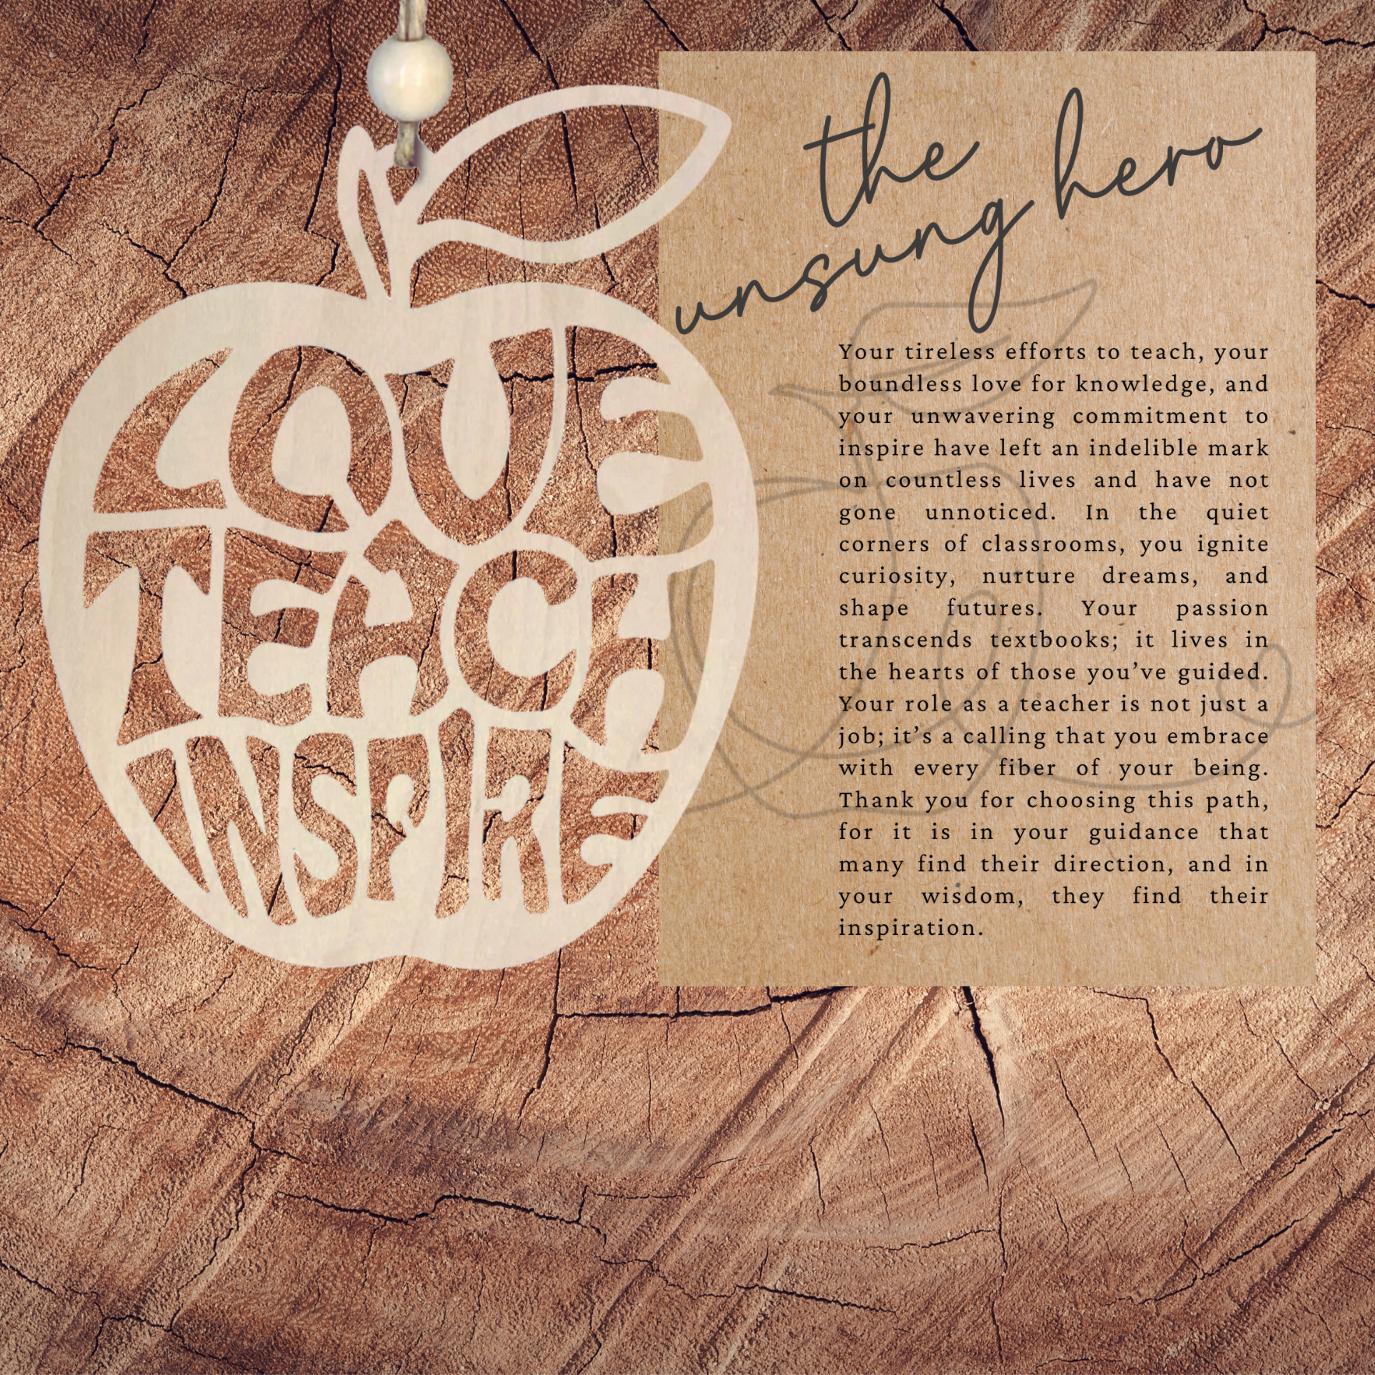 LOVE
TEACH
INSPIRE
the
unsung hero
Your tireless efforts to teach, your
boundless love for knowledge, and
your unwavering commitment to
inspire have left an indelible mark
on countless lives and have not
gone unnoticed. In the quiet
corners of classrooms, you ignite
curiosity, nurture dreams, and
shape futures. Your passion
transcends textbooks; it lives in
the hearts of those you’ve guided.
Your role as a teacher is not just a
job; it’s a calling that you embrace
with every fiber of your being.
Thank you for choosing this path,
for it is in your guidance that
many find their direction, and in
your wisdom, they find their
inspiration.